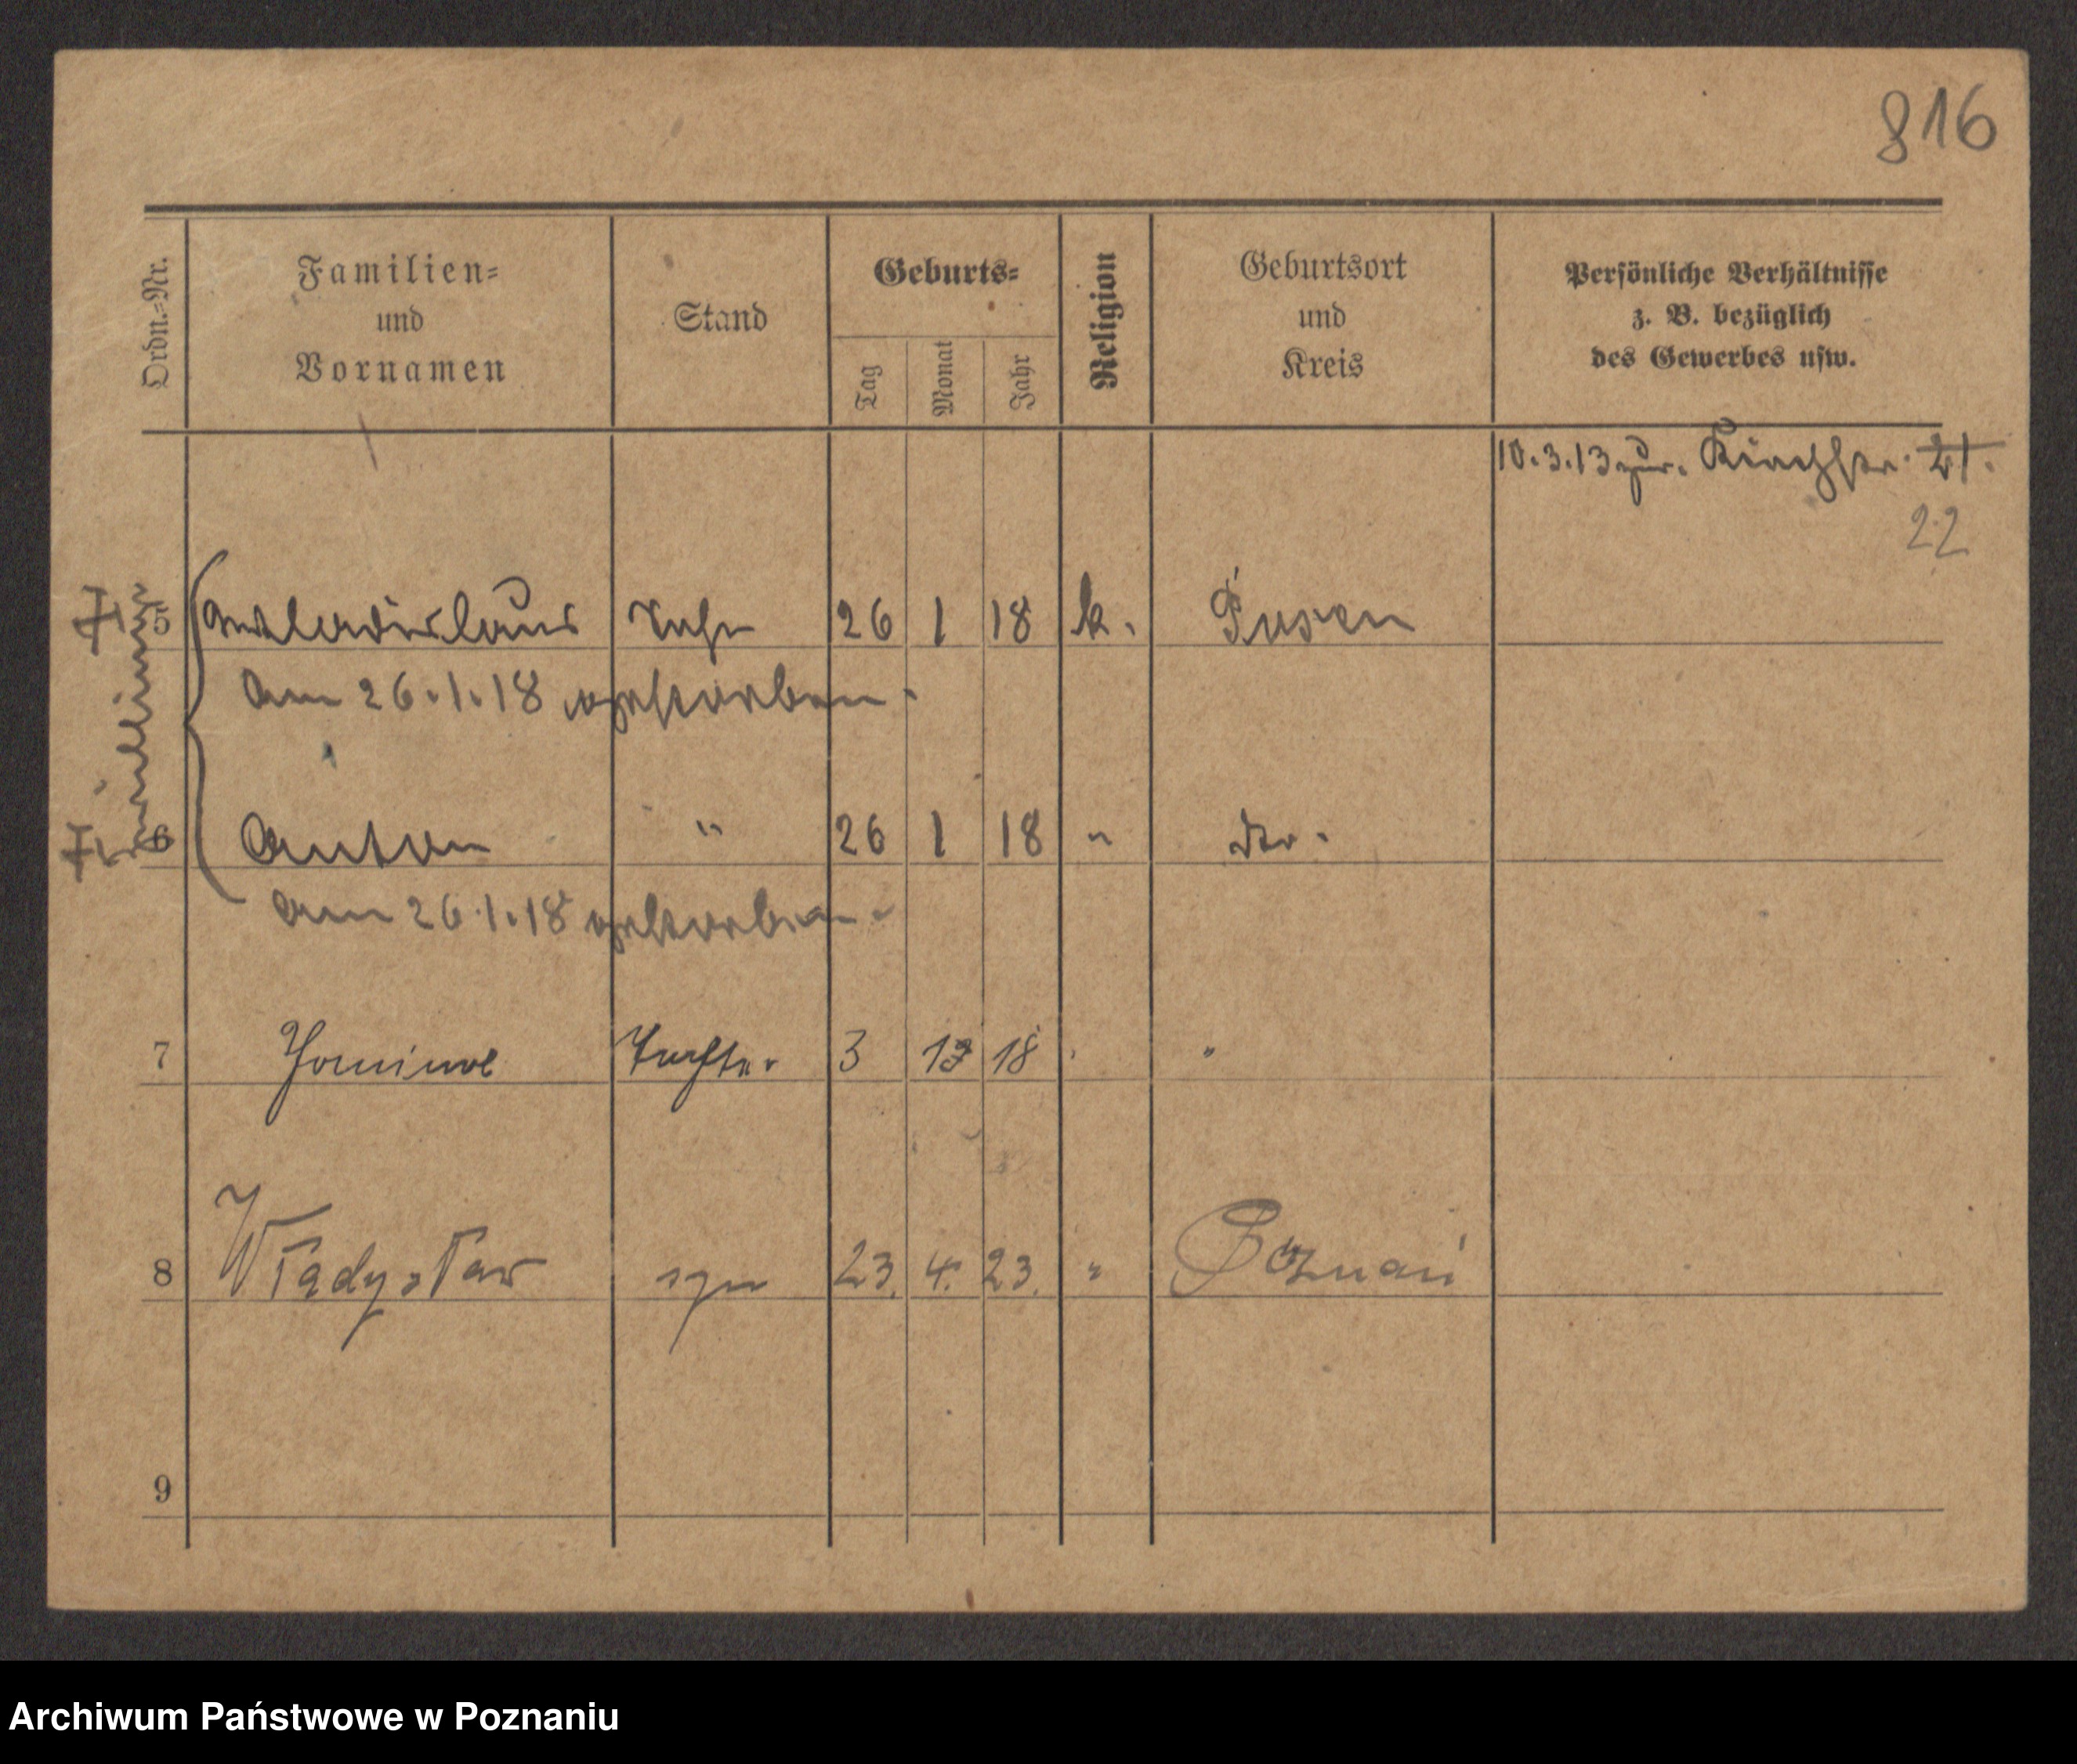 816
Ordn.=Nr.
Familien=
und
Vornamen
Stand
Geburts=
Tag
Monat
Jahr
Religion
Geburtsort
und
Kreis
Persönliche Verhältnisse
z. B. bezüglich
des Gewerbes usw.
10.3.13 zur. Kirchstr. 21.
22
Zwillinge
5 Wladislaus Sohn 26 1 18 k. Posen
am 26.1.18 gestorben.
6 Anton " 26 1 18 " dto.
am 26.1.18 gestorben.
7 Tochter 3 18 "
8 Władysław syn 23. 4. 23. " Poznań
9
Archiwum Państwowe w Poznaniu